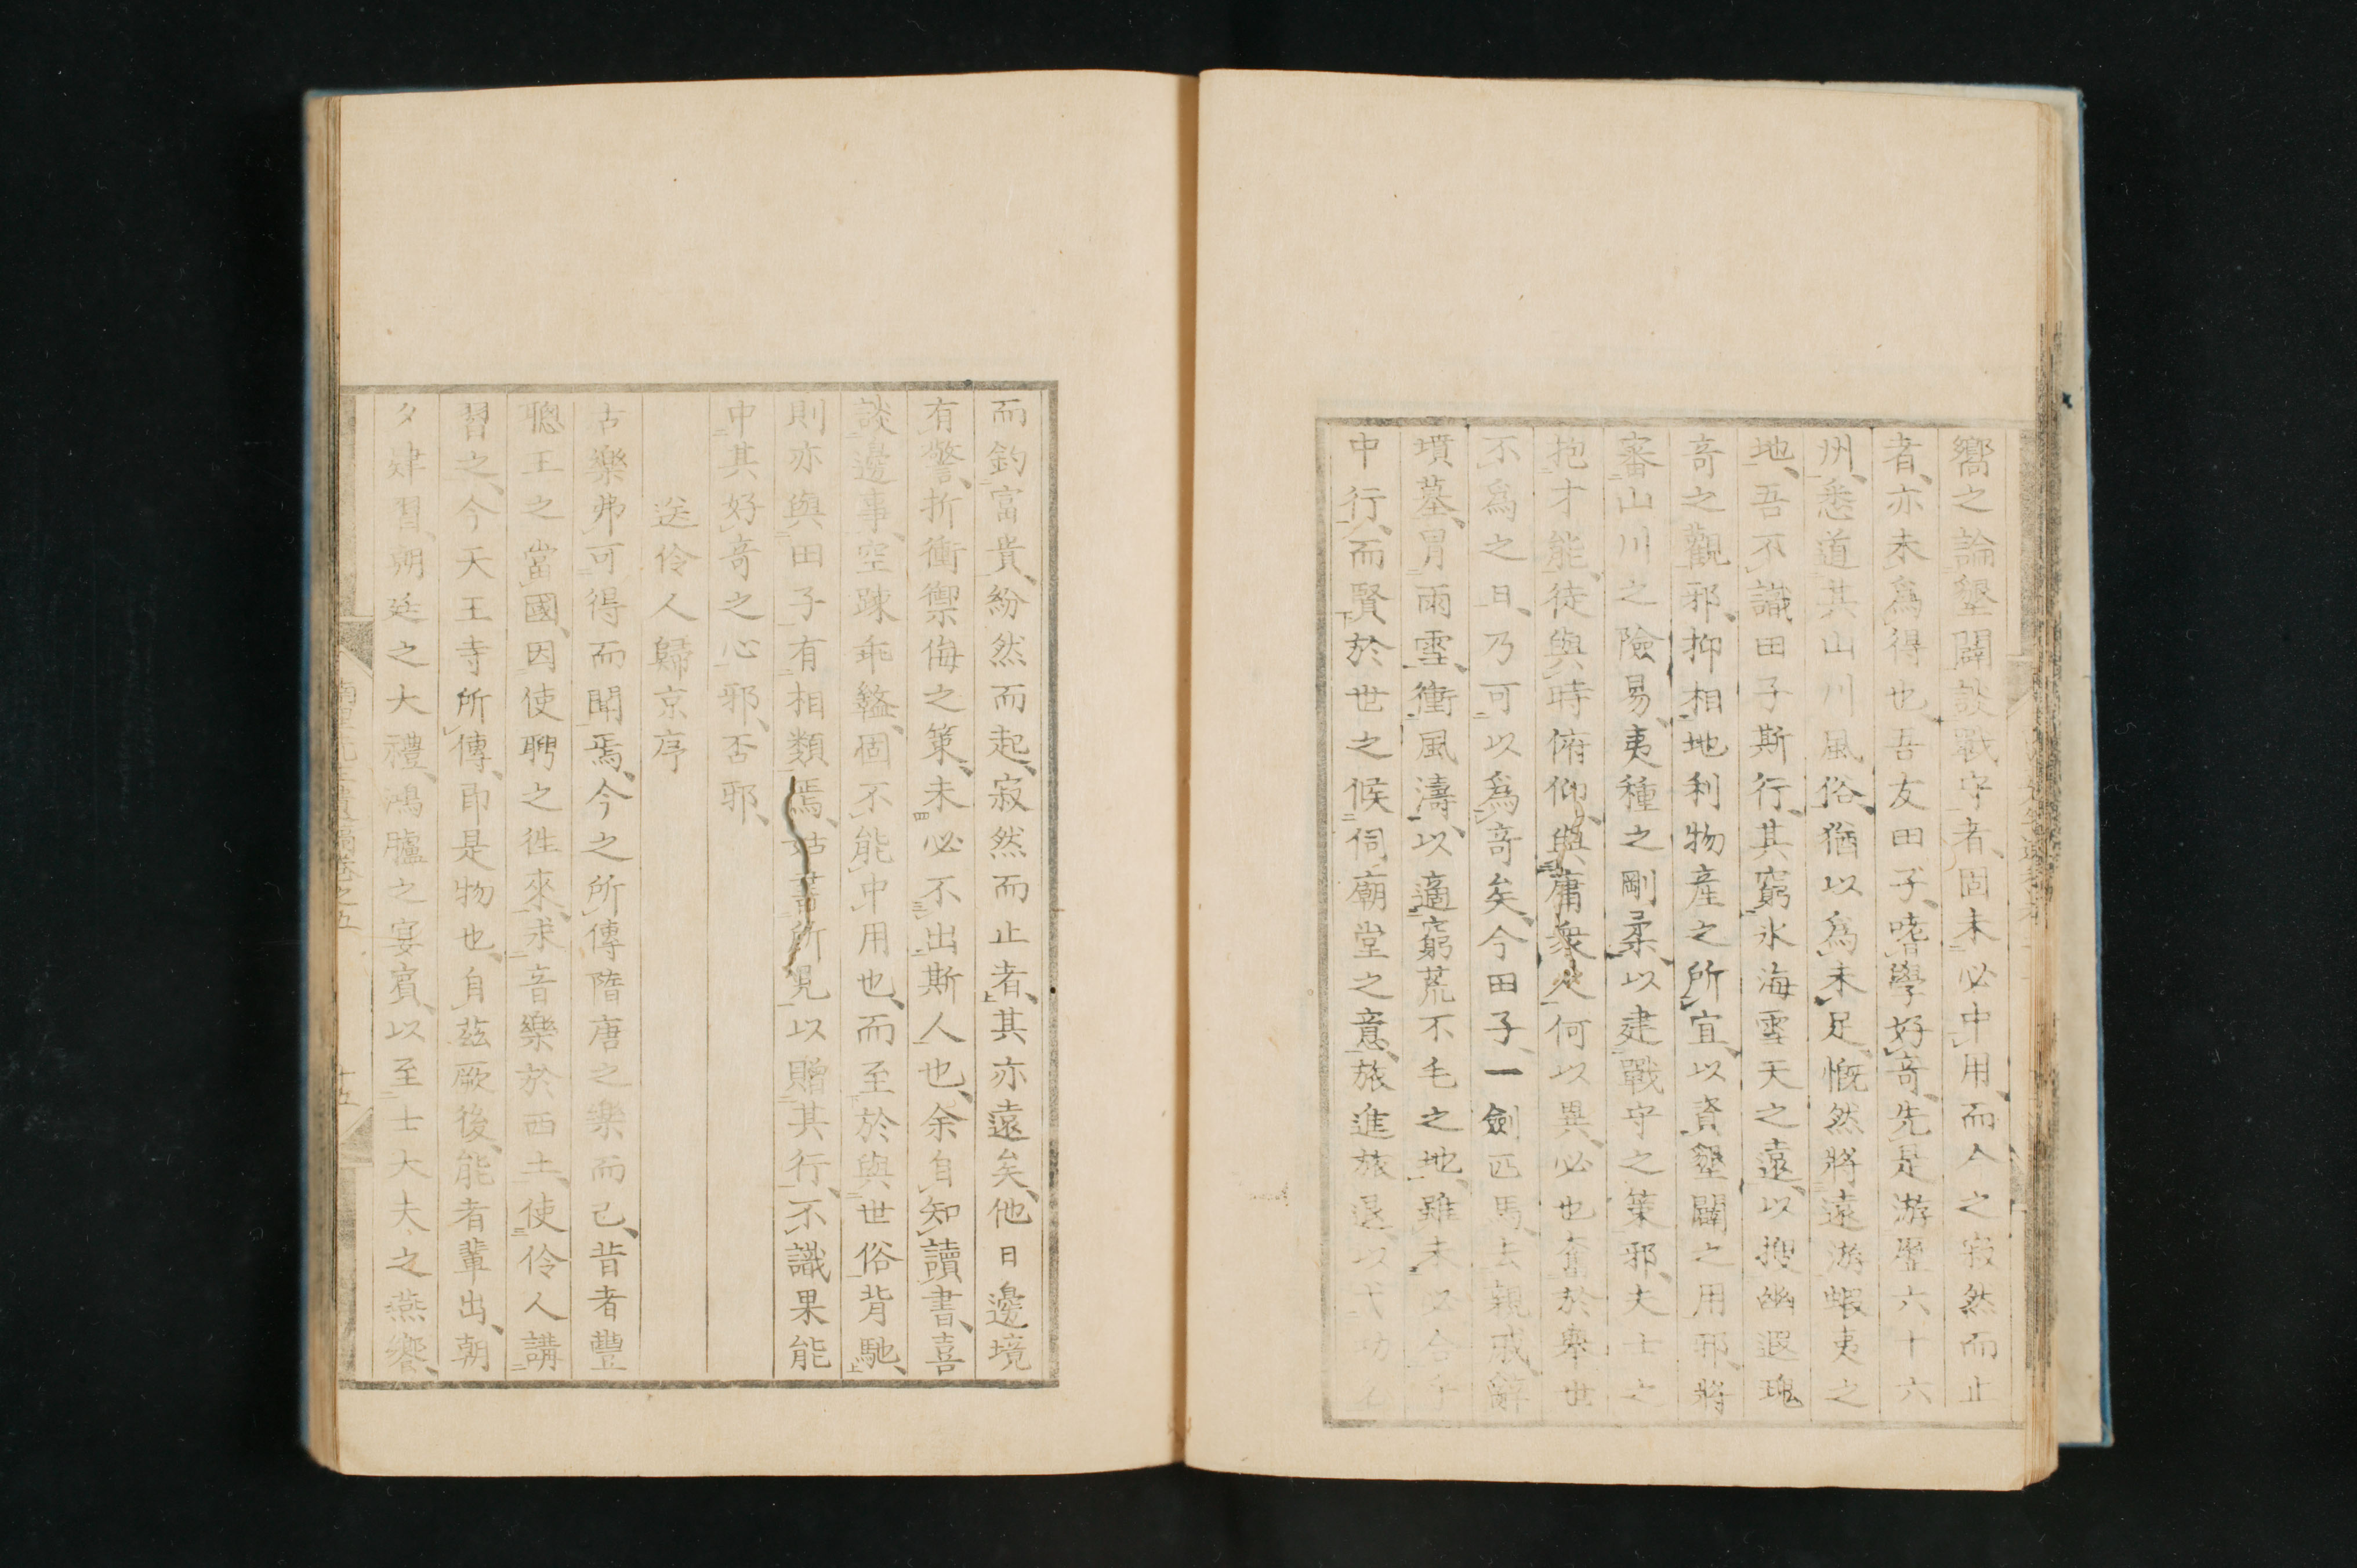 嚮之論墾闢談戰守者、固未必中用、而人之寂然而止
者、亦未爲得也、吾友田子、嗜學好奇、先是游歷六十六
州、悉道其山川風俗、猶以爲未足、慨然將遠游蝦夷之
地、吾不識田子斯行、其窮氷海雪天之遠、以搜幽遐瑰
奇之觀邪、抑相地利物產之所宜、以資墾闢之用邪、將
審山川之險易、夷種之剛柔、以建戰守之策邪、夫士之
抱才能、徒與時俯仰、與庸衆人何以異、必也奮於舉世
不爲之日、乃可以爲奇矣、今田子、一劍匹馬、去親戚、辭
墳墓、冐雨雪、衝風濤、以適窮荒不毛之地、雖未必合乎
中行、而賢於世之候伺廟堂之意、旅進旅退、以弋功名
而釣富貴、紛然而起、寂然而止者、其亦遠矣、他日邊境
有警、折衝禦侮之策、未必不出斯人也、余自知讀書、喜
談邊事、空踈乖盭、固不能中用也、而至於與世俗背馳、
則亦與田子有相類焉、姑書所見以贈其行、不識果能
中其好奇之心邪、否邪、
送伶人歸京序
古樂弗可得而聞焉、今之所傳隋唐之樂而已、昔者豐
聰王之當國、因使聘之往來、求音樂於西土、使伶人講
習之、今天王寺所傳、卽是物也、自茲厥後、能者輩出、朝
夕肄習、朝廷之大禮、鴻臚之宴賓、以至士大夫之燕饗、
卷之五
十五